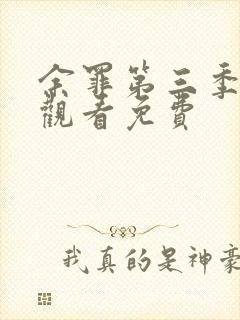 余罪第三季
觀看免費
我真的是神豪